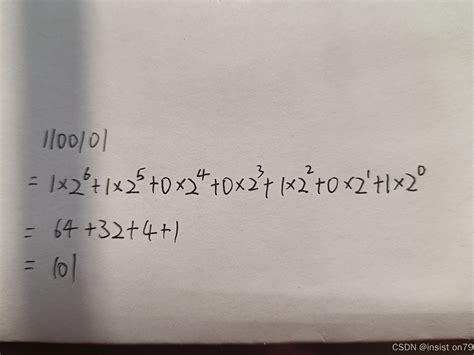 1100101
= 1×2⁶+1×2⁵+0×2⁴+0×2³+1×2²+0×2¹+1×2⁰
= 64+32+4+1
= 101
CSDN @insist on79